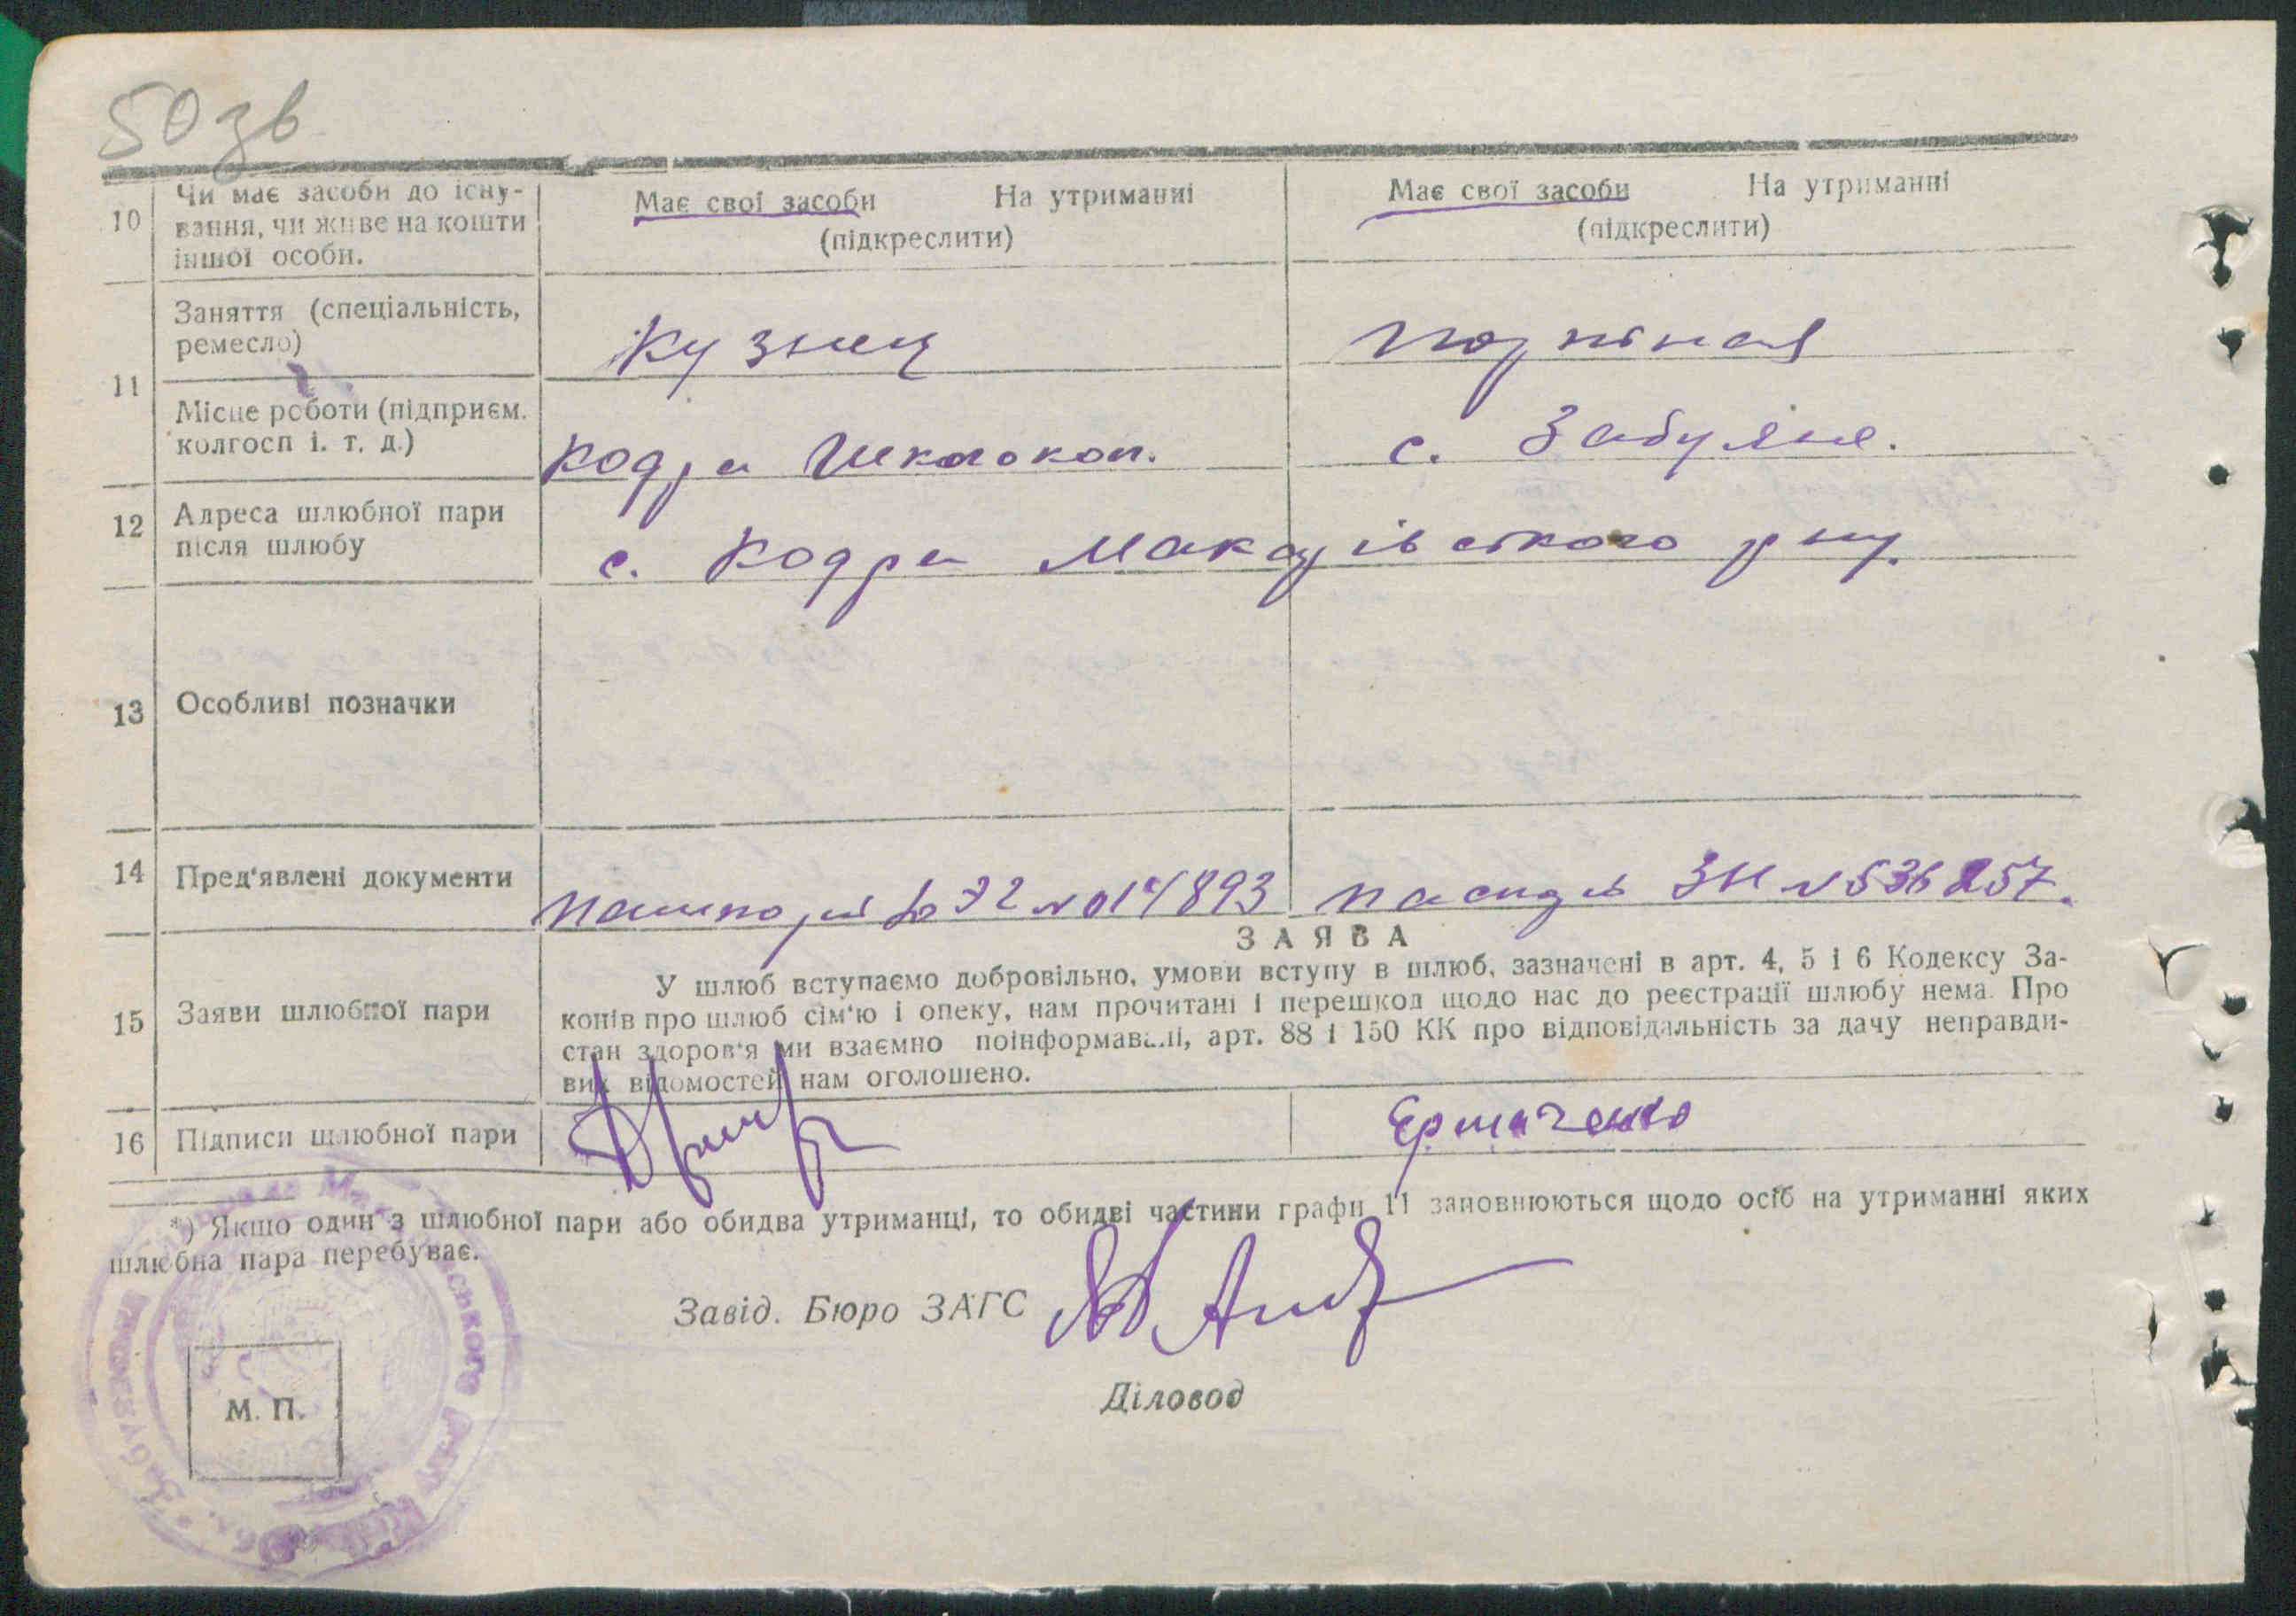 50зв
10
Чи має засоби до існу-
вання, чи живе на кошти
іншої особи.
Має свої засоби На утриманні
(підкреслити)
Має свої засоби На утриманні
(підкреслити)
11
Заняття (спеціальність,
ремесло)
Кузнец
Місце роботи (підприєм.
колгосп і. т. д.)
Кодра
с. Забуяня.
12
Адреса шлюбної пари
після шлюбу
с. Кодра Макарівського р ну.
13
Особливі позначки
14
Пред'явлені документи
№ 014893
№ 536257.
ЗАЯВА
15
Заяви шлюбної пари
У шлюб вступаємо добровільно, умови вступу в шлюб, зазначені в арт. 4, 5 і 6 Кодексу За-
конів про шлюб сім'ю і опеку, нам прочитані і перешкод щодо нас до реєстрації шлюбу нема. Про
стан здоров'я ми взаємно поінформовані, арт. 88 і 150 КК про відповідальність за дачу неправди-
вих відомостей нам оголошено.
16
Підписи шлюбної пари
Ермаченко
*) Якщо один з шлюбної пари або обидва утриманці, то обидві частини графи 11 заповнюються щодо осіб на утриманні яких
шлюбна пара перебуває.
Завід. Бюро ЗАГС
Діловод
М. П.